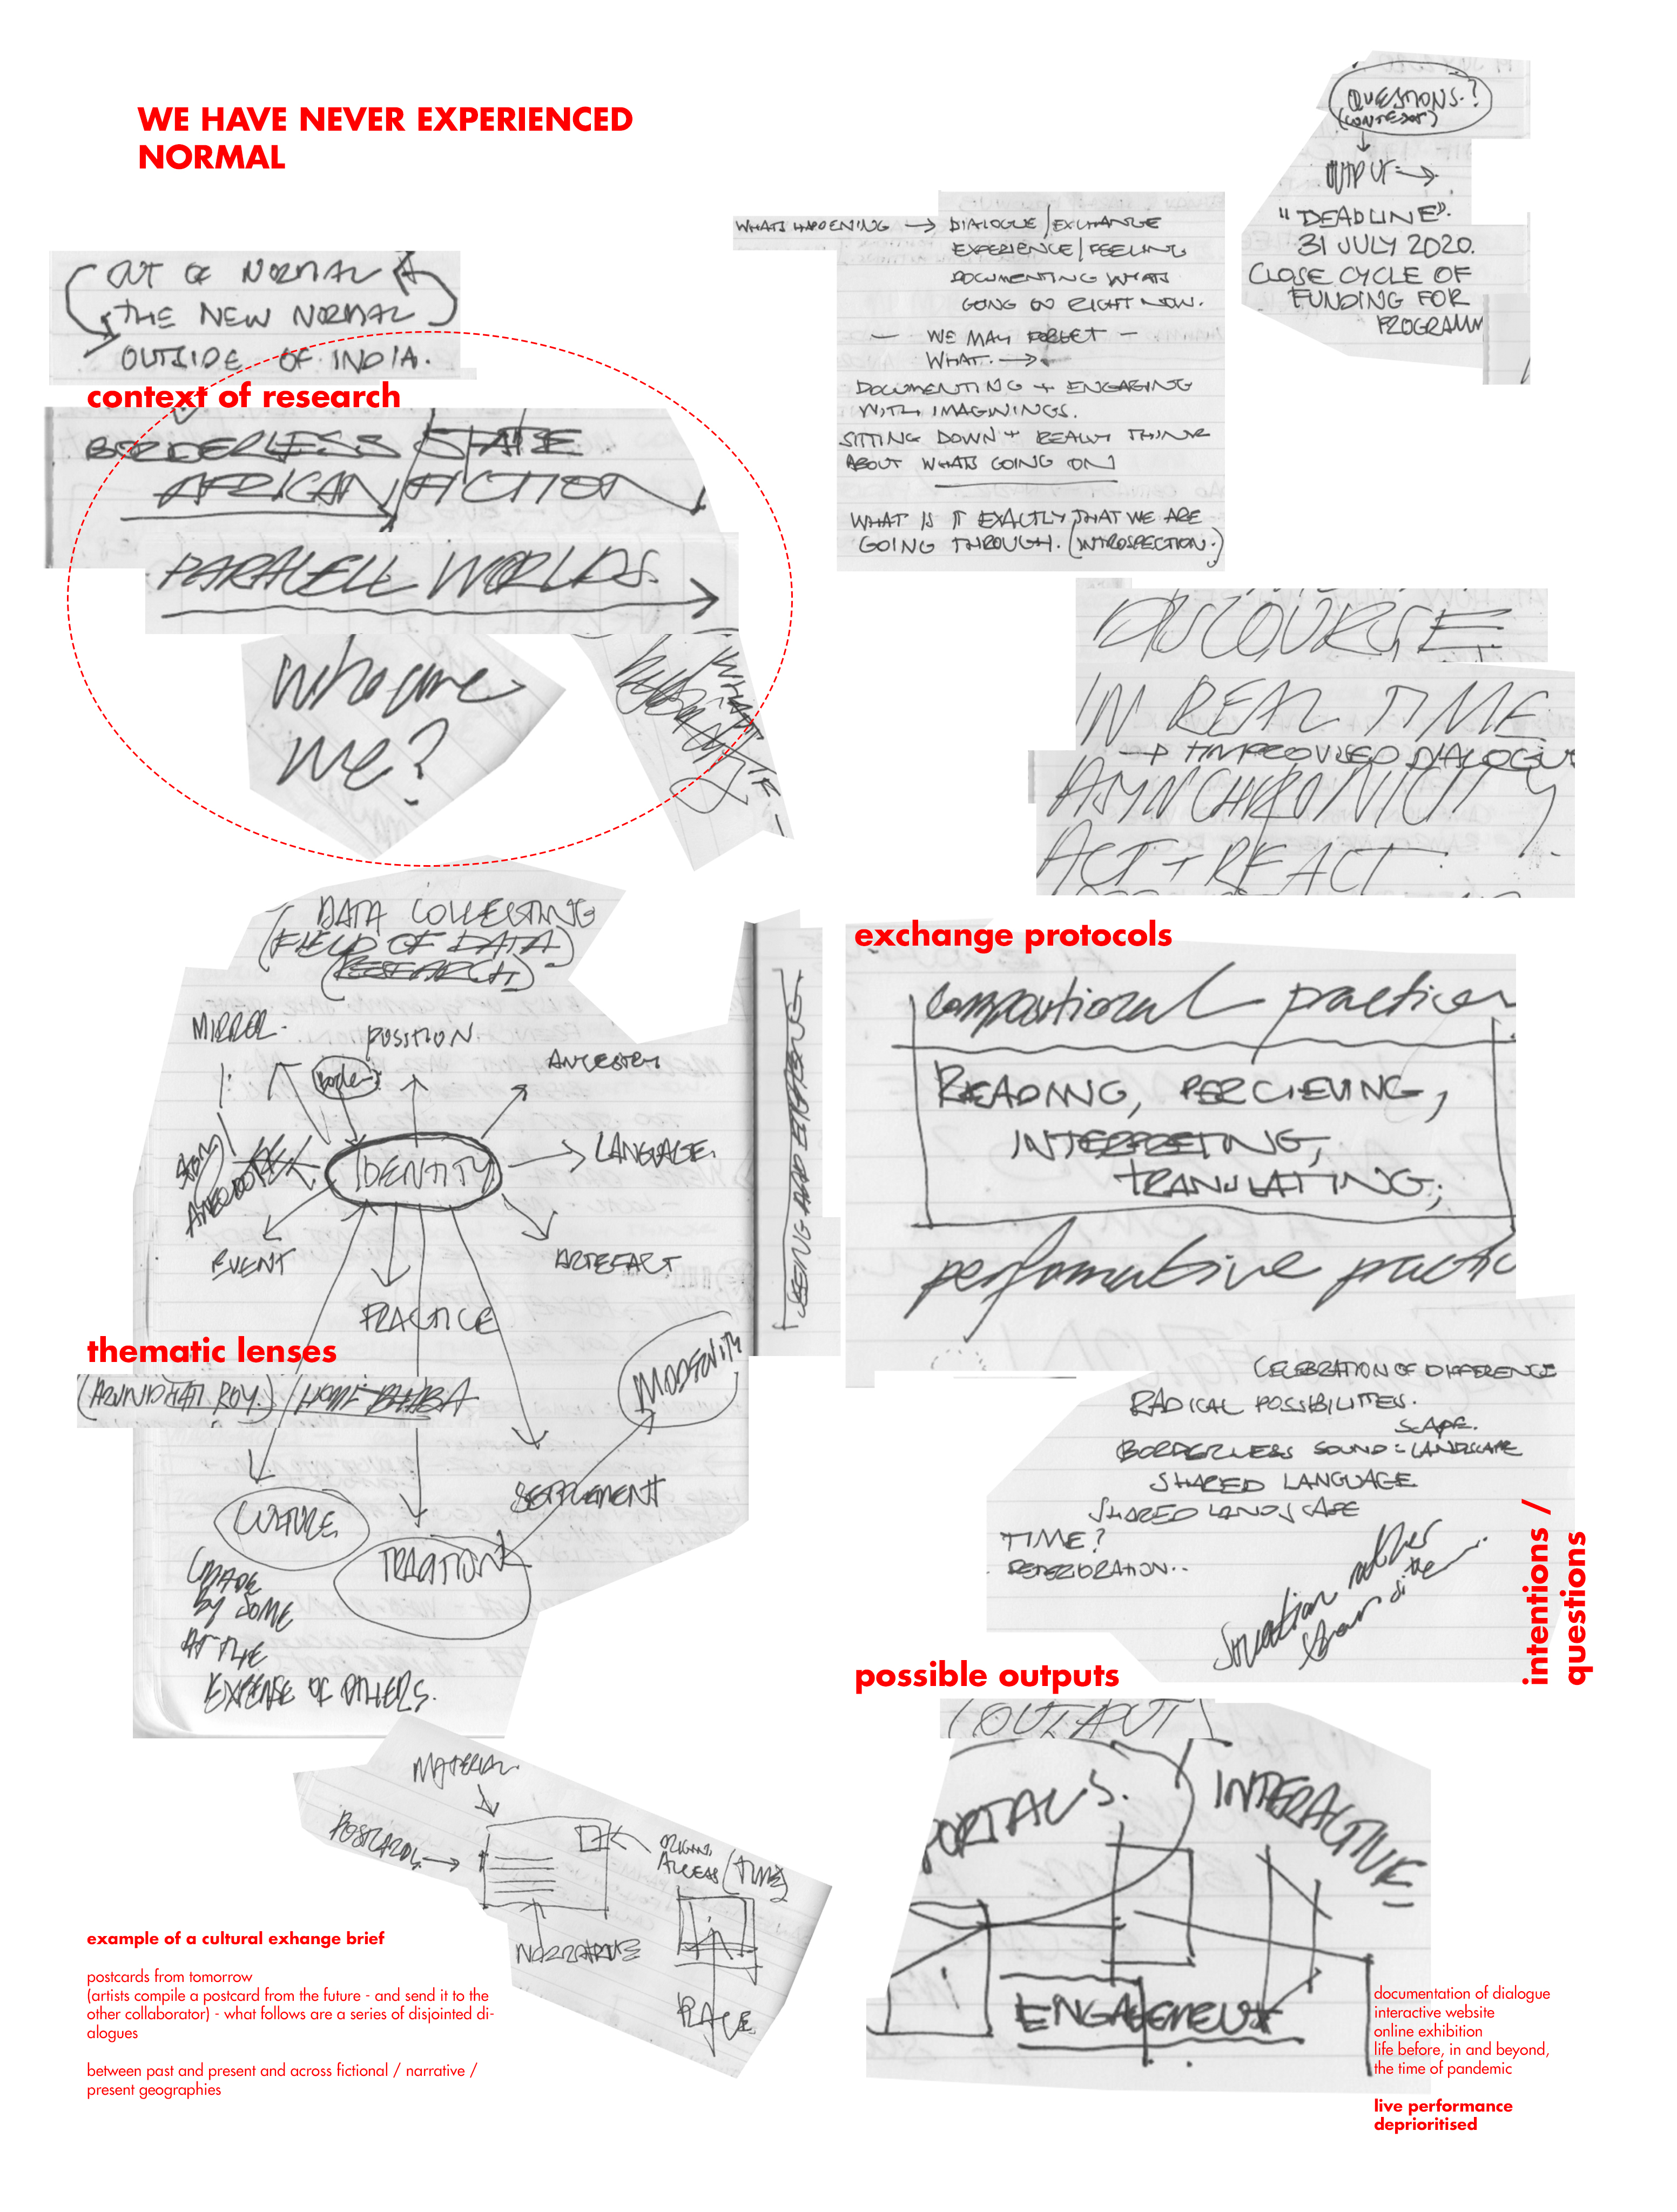 WE HAVE NEVER EXPERIENCED
NORMAL
QUESTIONS.?
(CONTEXT)
OUTPUT
"DEADLINE".
31 JULY 2020.
CLOSE CYCLE OF
FUNDING FOR
PROGRAMM
WHATS HAPPENING → DIALOGUE/EXCHANGE
EXPERIENCE/FEELING
DOCUMENTING WHATS
GOING ON RIGHT NOW.
— WE MAY FORGET —
WHAT. →
DOCUMENTING + ENGAGING
WITH IMAGININGS.
SITTING DOWN + REALLY THINK
ABOUT WHATS GOING ON
WHAT IS IT EXACTLY THAT WE ARE
GOING THROUGH. (INTROSPECTION.)
OUT OF NORMAL
THE NEW NORMAL
OUTSIDE OF INDIA.
context of research
BORDERLESS STATE
AFRICAN/FICTION
PARALELL WORLDS.
who are
we?
DISCOURSE
IN REAL TIME
→ IMPROVISED DIALOGUE
ASYNCHRONICITY
ACT + REACT
DATA COLLECTING
(FIELD OF DATA)
(RESEARCH)
MIRROR.
POSITION.
ANCESTRY
LANGUAGE.
IDENTITY
STORY
ANECDOTE
EVENT
ARTEFACT
PRACTICE
MODERNITY
thematic lenses
(ARUNDHATI ROY.) / HOMI BHABA
SETTLEMENT
CULTURE
TRADITION
(MADE
BY SOME
AT THE
EXPENSE OF OTHERS.
exchange protocols
compositional practices
READING, PERCIEVING,
INTERPRETING,
TRANSLATING;
performative practic
CELEBRATION OF DIFFERENCE
RADICAL POSSIBILITIES.
SCAPE.
BORDERLESS SOUND - LANDSCAPE
SHARED LANGUAGE
SHARED LANDSCAPE
TIME?
DETERIORATION..
Situation rather
than site
intentions /
questions
possible outputs
(OUTPUT)
PORTALS.
INTERACTIVE
ENGAGEMENT
MATERIAL
POSTCARDS
ORIGIN,
ACCESS (TIME)
NARRATIVE
PLACE
example of a cultural exhange brief
postcards from tomorrow
(artists compile a postcard from the future - and send it to the
other collaborator) - what follows are a series of disjointed di-
alogues
between past and present and across fictional / narrative /
present geographies
documentation of dialogue
interactive website
online exhibition
life before, in and beyond,
the time of pandemic
live performance
deprioritised